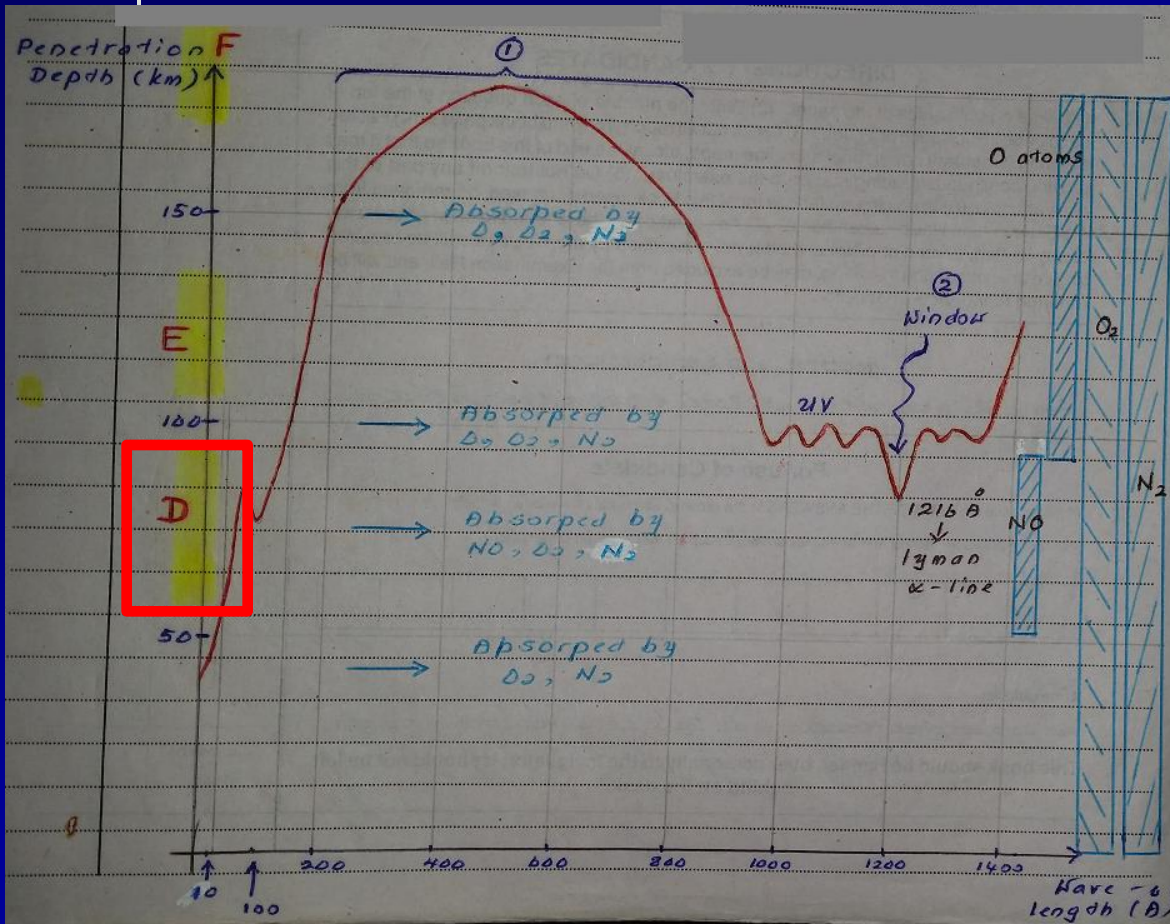 Penetration F
Depth (km)
①
O atoms
150
Absorped by
O, O2, N2
②
Window
E
O2
UV
100
Absorped by
O, O2, N2
D
Absorped by
NO, O2, N2
1216 Å
NO
N2
lyman
α-line
50
Absorped by
O2, N2
200 400 600 800 1000 1200 1400
10
100
Wave-
length (Å)